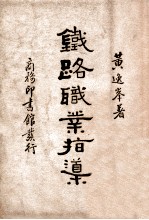 黃逸峯著
鐵路職業指導
商務印書館發行